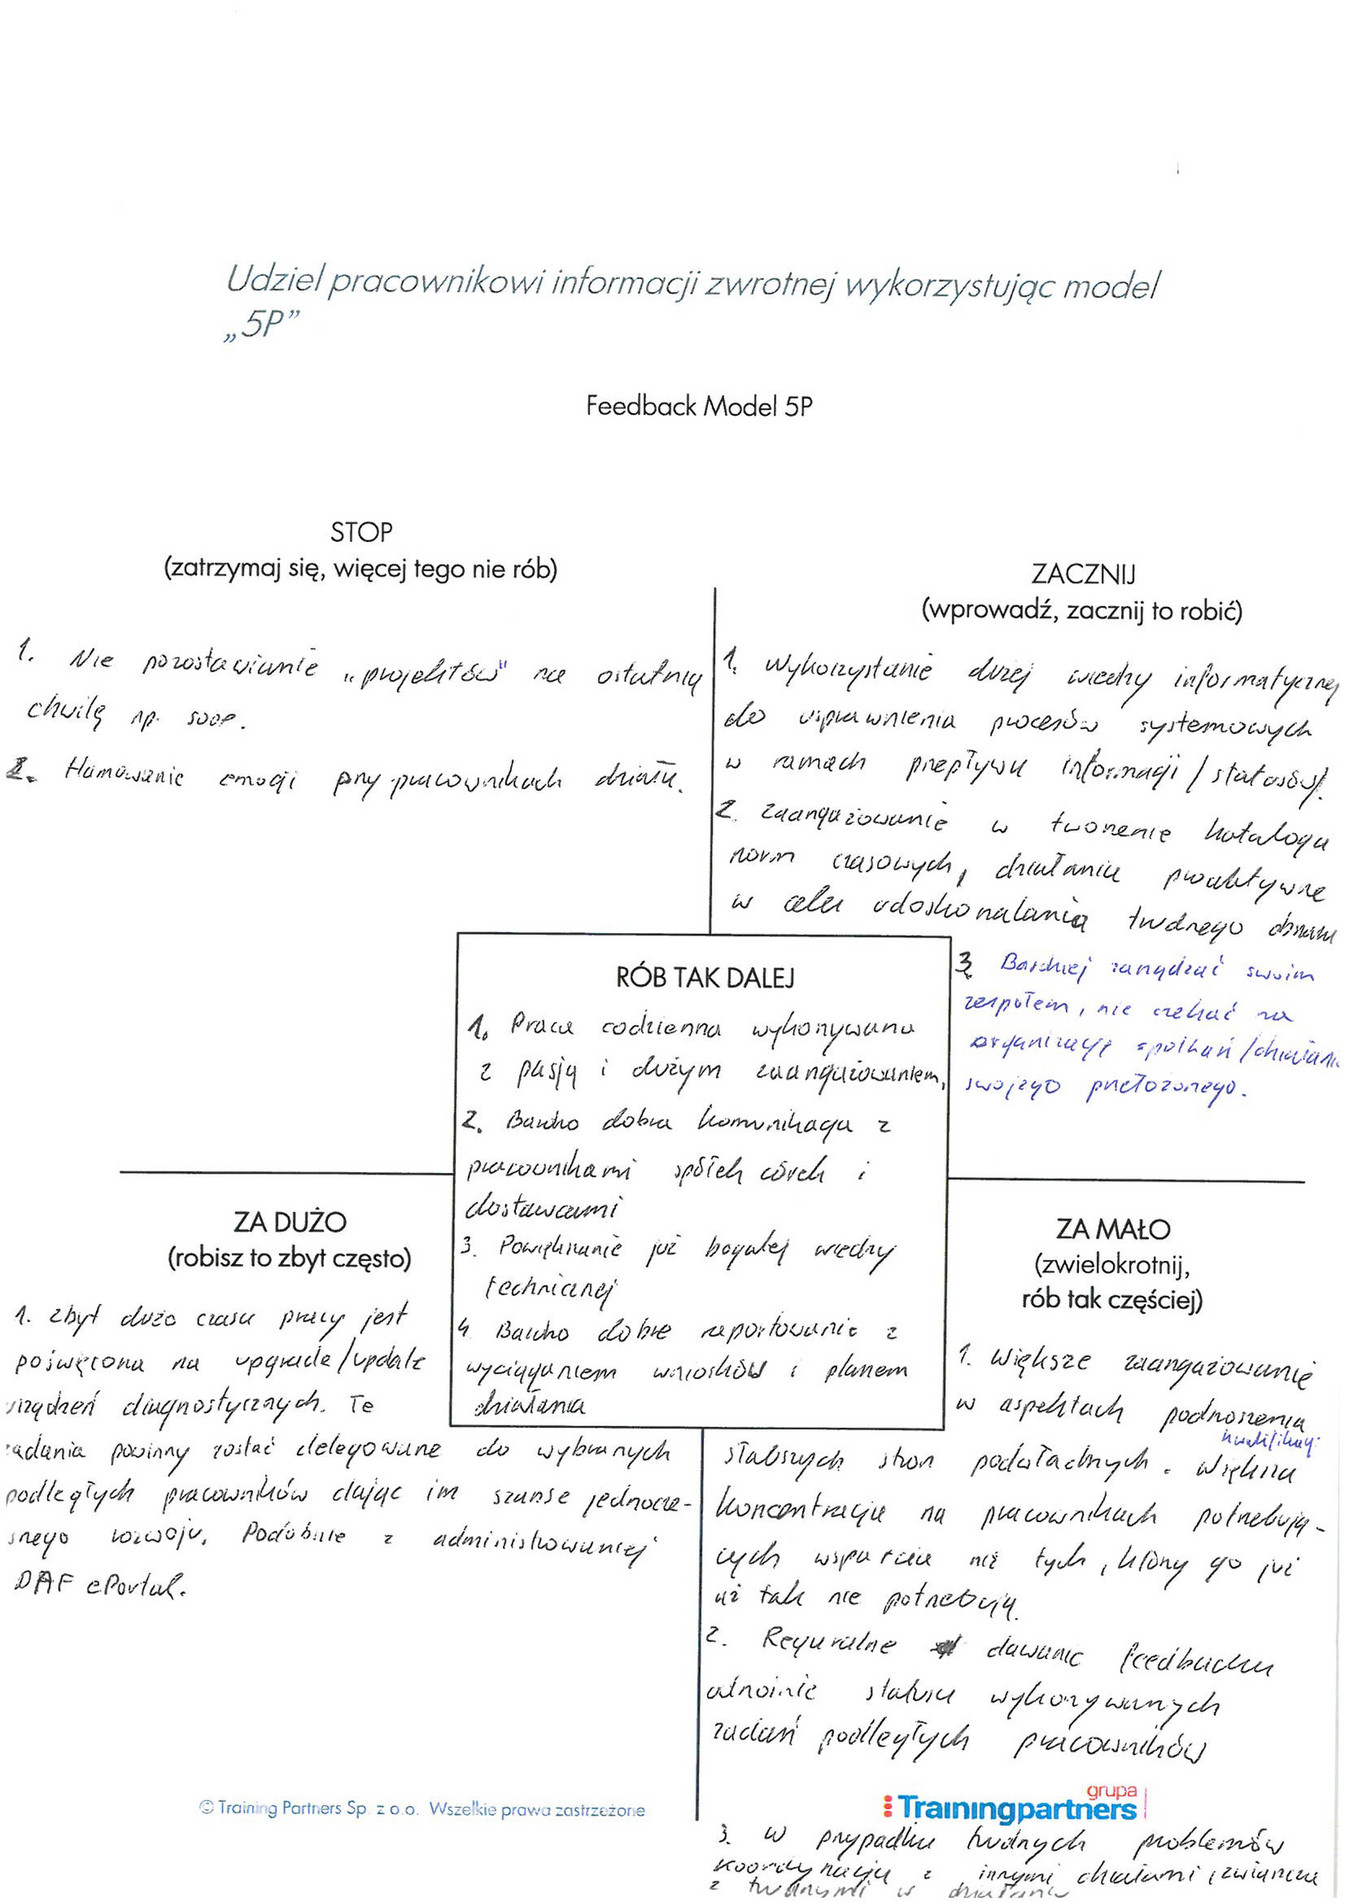 Udziel pracownikowi informacji zwrotnej wykorzystując model
„5P”
Feedback Model 5P
STOP
(zatrzymaj się, więcej tego nie rób)
1. Nie pozostawianie „projektów" na ostatnią
chwilę np.
2. Hamowanie emocji przy pracownikach działu.
ZACZNIJ
(wprowadź, zacznij to robić)
1. Wykorzystanie dużej wiedzy informatycznej
do usprawnienia procesów systemowych
w ramach przepływu informacji / statusów/.
2. Zaangażowanie w tworzenie katalogu
norm czasowych, działania proaktywne
w celu udoskonalania trudnego obszaru
3. Bardziej zarządzać swoim
zespołem, nie czekać na
organizację spotkań /działania
swojego przełożonego.
RÓB TAK DALEJ
1. Praca codzienna wykonywana
z pasją i dużym zaangażowaniem.
2. Bardzo dobra komunikacja z
pracownikami spółek córek i
dostawcami
3. Powiększanie już bogatej wiedzy
technicznej
4 Bardzo dobre raportowanie z
wyciąganiem wniosków i planem
działania
ZA DUŻO
(robisz to zbyt często)
1. Zbyt dużo czasu pracy jest
poświęcona na upgrade/update
urządzeń diagnostycznych. Te
zadania powinny zostać delegowane do wybranych
podległych pracowników dając im szanse jednocze-
snego rozwoju. Podobnie z administrowaniej
DAF ePortal.
ZA MAŁO
(zwielokrotnij,
rób tak częściej)
1. Większe zaangażowanie
w aspektach podnoszenia
kwalifikacji
słabszych stron podwładnych. Większa
koncentracja na pracownikach potrzebują-
cych wsparcia niż tych, którzy go już
aż tak nie potrzebują.
2. Reguralne dawanie feedbacku
odnośnie statusu wykonywanych
zadań podległych pracowników
© Training Partners Sp. z o.o. Wszelkie prawa zastrzeżone
grupa
Trainingpartners
3. W przypadku trudnych problemów
koordynacja z innymi działami, związane
z trudnymi w działaniu